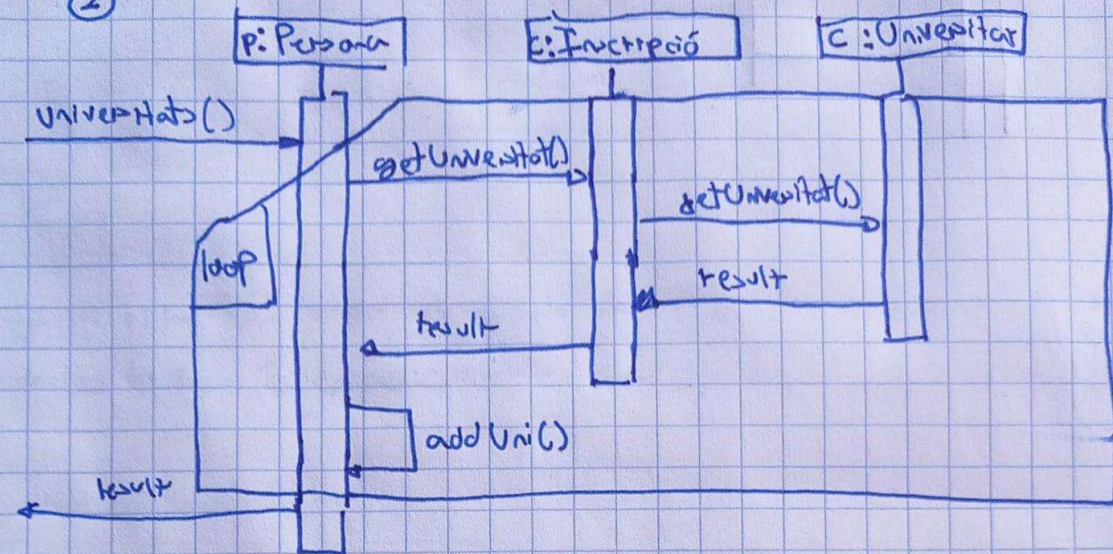 2
p: Persona
i: Inscripció
c: Universitat
universitats()
getUniversitat()
getUniversitat()
loop
result
result
addUni()
result